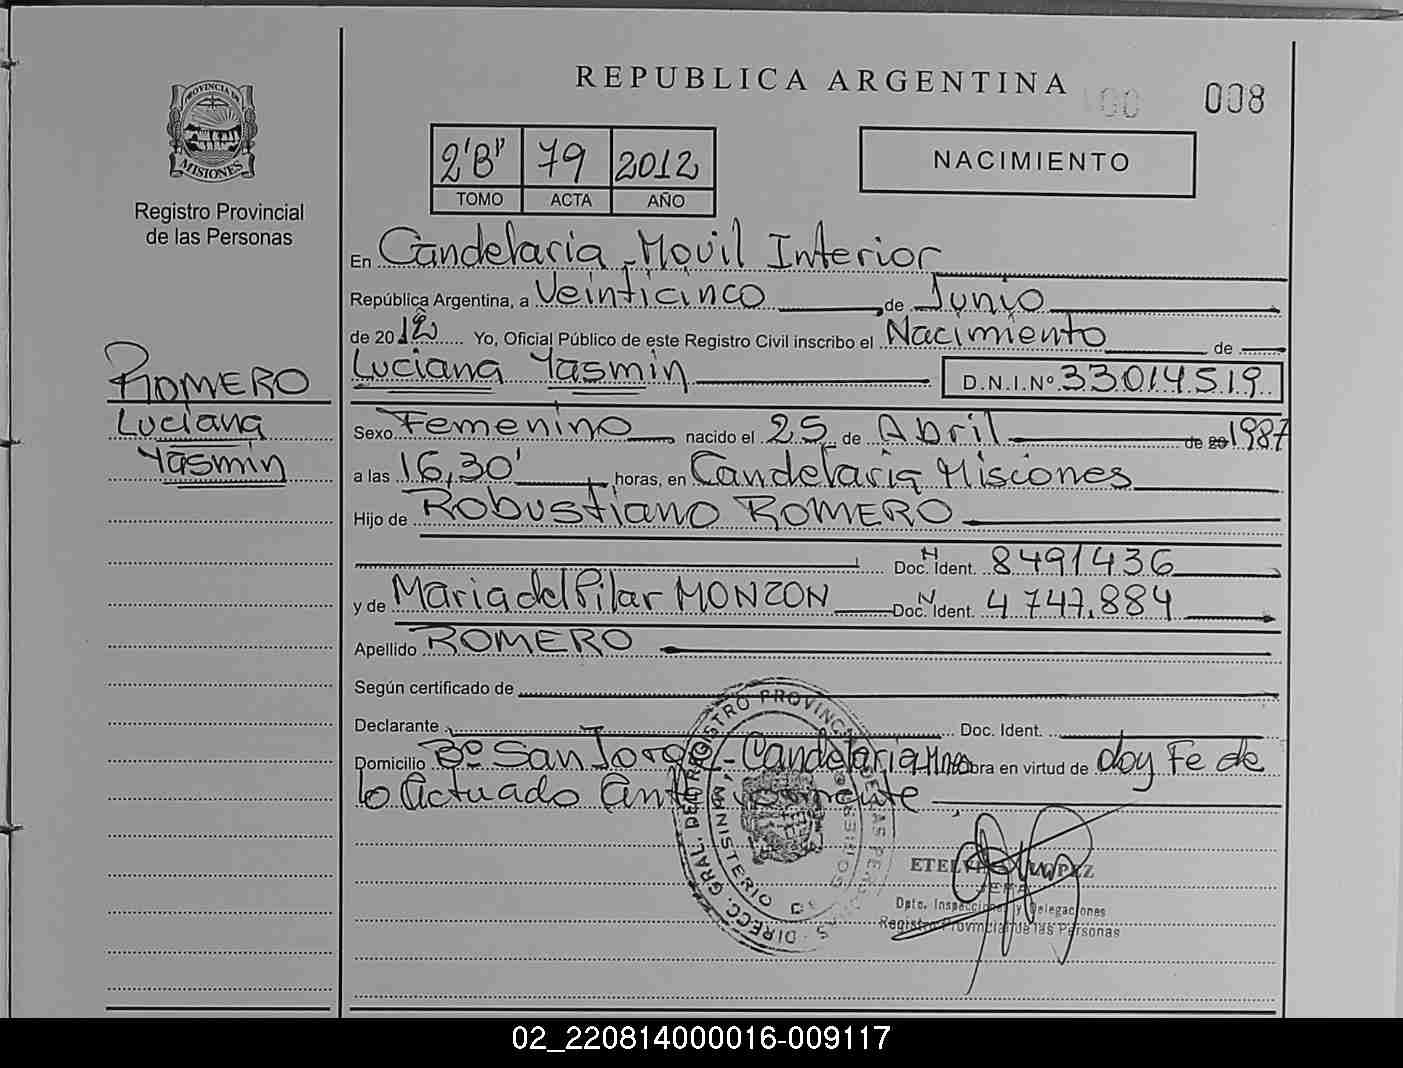 REPUBLICA ARGENTINA
008
PROVINCIA DE
MISIONES
Registro Provincial
de las Personas
2'B" 79 2012
TOMO ACTA AÑO
NACIMIENTO
En Candelaria Movil Interior
República Argentina, a Veinticinco de Junio
de 2012 Yo, Oficial Público de este Registro Civil inscribo el Nacimiento de
Luciana Yasmin D.N.I.Nº 33.014.519
ROMERO
Luciana
Yasmin
Sexo Femenino nacido el 25 de Abril de 20 1987
a las 16,30' horas, en Candelaria Misiones
Hijo de Robustiano ROMERO
Doc. Ident. Nº 8491436
y de Maria del Pilar MONZON Doc. Ident. Nº 4747.884
Apellido ROMERO
Según certificado de
Declarante Doc. Ident.
Domicilio Bº San Jorge - Candelaria Mnes obra en virtud de doy Fe de
lo Actuado Anteriormente
DIRECC. GRAL. DEL REGISTRO PROVINCIAL DE LAS PERSONAS
MINISTERIO DE
JEFA
Dpto. Inspecciones y Delegaciones
Registro Provincial de las Personas
02_220814000016-009117